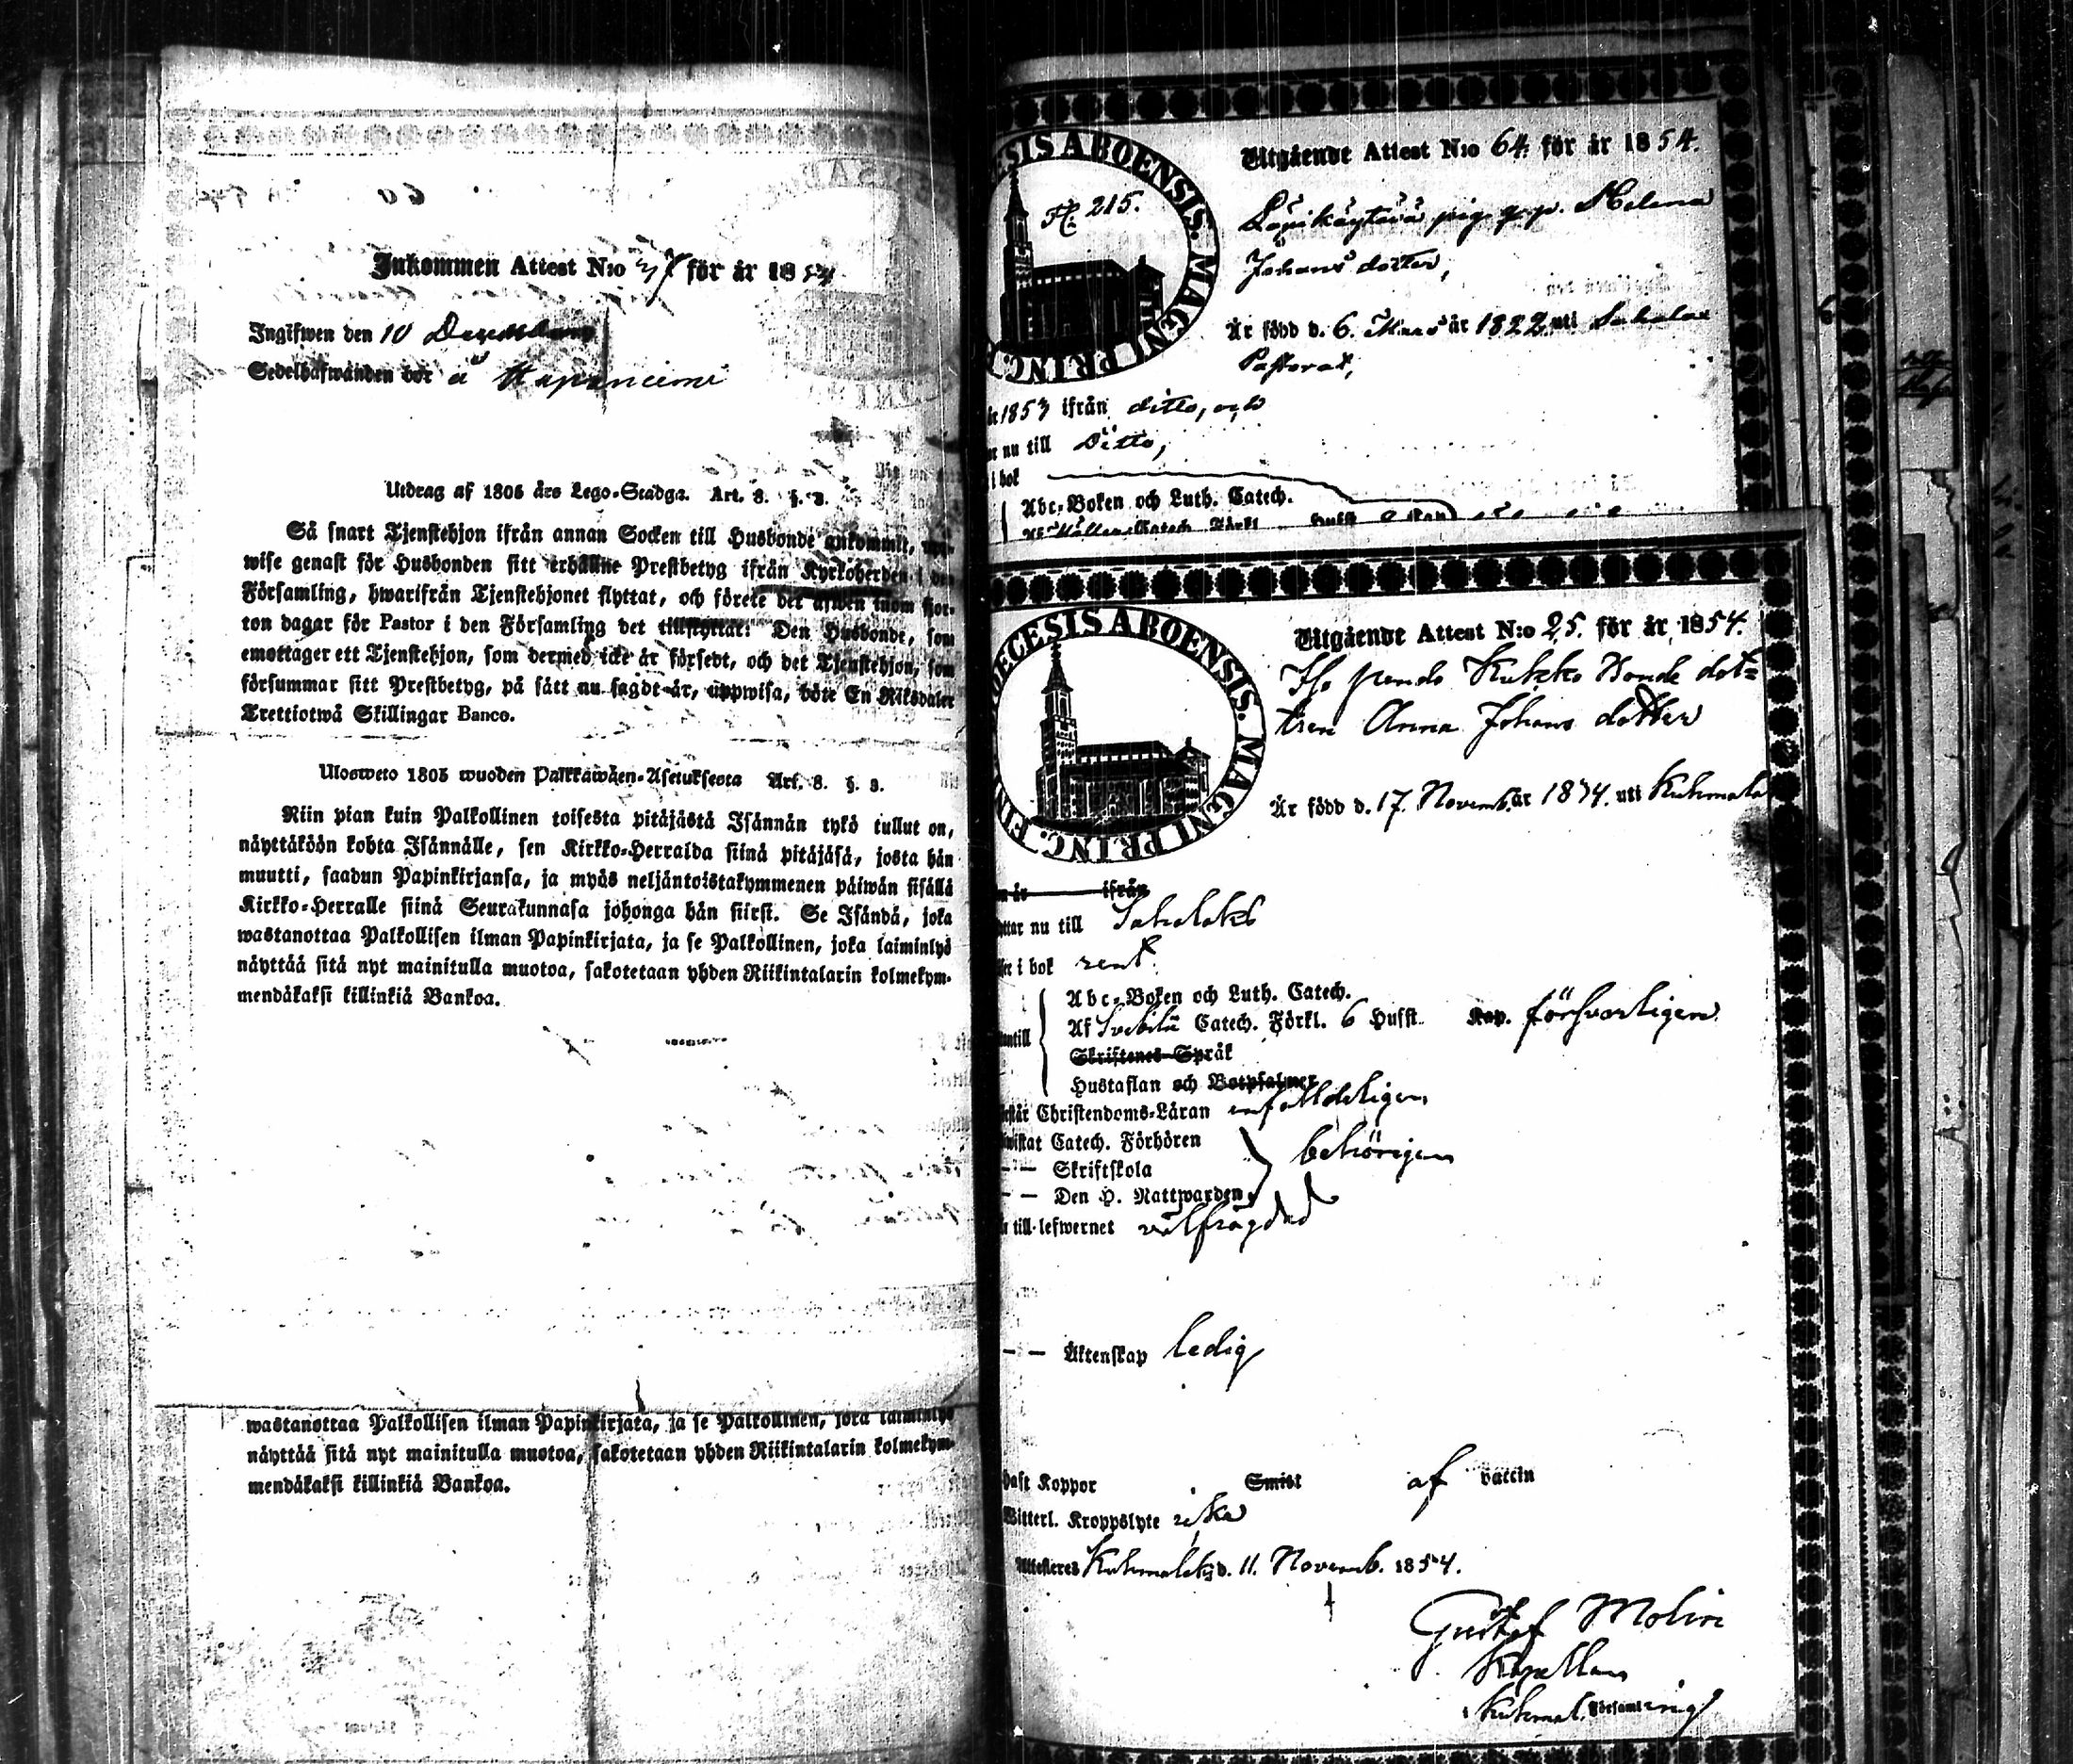 Inkommen Attest N:o 37 för år 1854
Ingifwen den 10 December
Sedelhafwanden bor å
Utdrag af 1805 års Lego-Stadga. Art. 8. §. 3.
Så snart Tjenstehjon ifrån annan Socken till Husbonde ankommit,
wise genast för Husbonden sitt erhållne Prestbetyg ifrån Kyrkoherden i den
Församling, hwarifrån Tjenstehjonet flyttat, och förete det äfwen inom fjor-
ton dagar för Pastor i den Församling det tillflyttat. Den Husbonde, som
emottager ett Tjenstehjon, som dermed icke är försedt, och det Tjenstehjon, som
försummar sitt Prestbetyg, på sätt nu sagdt är, uppwisa, böte En Riksdaler
Trettiotwå Skillingar Banco.
Ulosweto 1805 wuoden Palkkawäen-Asetuksesta Art. 8. §. 3.
Niin pian kuin Palkollinen toisesta pitäjästä Isännän tykö tullut on,
näyttäköön kohta Isännälle, sen Kirkko-Herralda siinä pitäjäsä, josta hän
muutti, saadun Papinkirjansa, ja myös neljäntoistakymmenen päiwän sisällä
Kirkko-Herralle siinä Seurakunnasa johonga hän siirsi. Se Isändä, joka
wastanottaa Palkollisen ilman Papinkirjata, ja se Palkollinen, joka laiminlyö
näyttää sitä nyt mainitulla muotoa, sakotetaan yhden Riikintalarin kolmekym-
mendäkaksi killinkiä Bankoa.
wastanottaa Palkollisen ilman Papinkirjata, ja se Palkollinen, joka laiminlyö
näyttää sitä nyt mainitulla muotoa, sakotetaan yhden Riikintalarin kolmekym-
mendäkaksi killinkiä Bankoa.
ESIS ABOENSIS. MAGNI PRINC. F
H. 215.
Utgående Attest N:o 64. för år 1854.
pig. Helena
Johans dotter,
Är född d. 6. Mars år 1822 uti Sahalax
Pastorat,
år 1853 ifrån ditto, och
nu till Ditto,
i bok
Abc-Boken och Luth. Catech.
OECESIS ABOENSIS. MAGNI PRINC. FIN
Utgående Attest N:o 25. för år 1854.
Kukko Bonde dot-
tren Anna Johans dotter
Är född d. 17. Novemb. år 1834. uti Kuhmala
ifrån
ttar nu till Sahalaks
i bok rent.
Abc-Boken och Luth. Catech.
Af Svebilii Catech. Förkl. 6 Hufst. Kap. försvarligen
Skriftenes Språk
Hustaflan och Botpsalmer
står Christendoms-Läran enfaldeligen
wistat Catech. Förhören
— — Skriftskola behörigen
— — Den H. Nattwarden
till lefwernet välfrägdad
— — Äktenskap ledig
haft Koppor Smitt af vaccin
Witterl. Kroppslyte icke
Attesteres Kuhmalaks d. 11. Novemb. 1854.
Gustaf Molin
Kapellan
Kuhmal. Församling